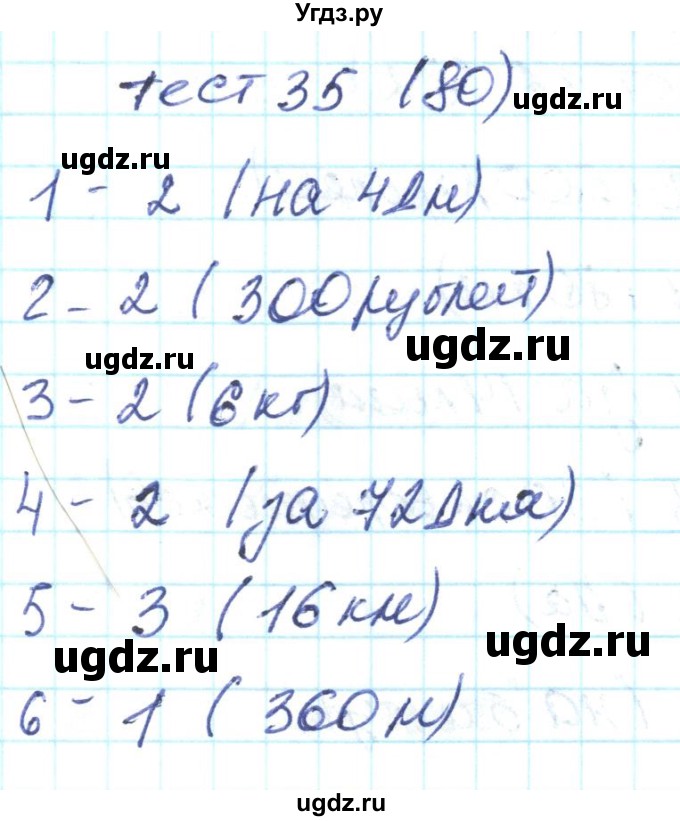 Угдз.ру
Тест 35 (80)
ugdz.ru
ugdz.ru
1 - 2 (на 4 дм)
2 - 2 (300 рублей)
ugdz.ru
ugdz.ru
3 - 2 (6 кг)
4 - 2 (за 72 дня)
5 - 3 (16 км)
ugdz.ru
ugdz.ru
6 - 1 (360 м)
ugdz.ru